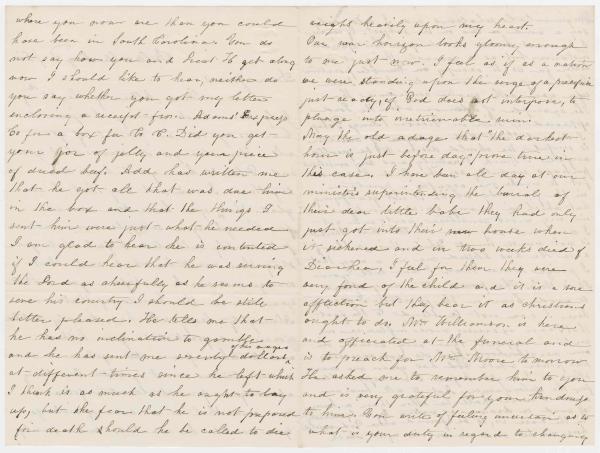 where you now are than you could
have been in South Carolina. You do
not say how you and Priest H get along
now I should like to hear, neither do
you say whether you got my letter
enclosing a receipt from Adams Express
Co for a box for Co C. Did you get
your jar of jelly and your piece
of dried beef. Add has written me
that he got all that was due him
in the box and that the things I
sent him were just what he needed
I am glad to hear he is contented
if I could hear that he was serving
the Lord as cheerfully as he seems to
serve his country I should be still
better pleased. He tells me that
he has no inclination to gamble
and he has sent me seventy dollars
of his wages
at different times since he left which
I think is as much as he ought to lay
up, but the fear that he is not prepared
for death should he be called to die
weighs heavily upon my heart.
Our war horizon looks gloomy enough
to me just now. I feel as if as a nation
we were standing upon the verge of a precipice
just ready, if God does not interpose, to
plunge into irretrievable ruin.
May the old adage that "the darkest
hour is just before day" prove true in
this case. I have been all day at our
ministers superintending the burial of
their dear little babe they had only
just got into their new house when
it sickened and in two weeks died of
Diarrhea, I feel for them they were
very fond of the child and it is a sore
affliction but they bear it as christians
ought to do. Mr Williamson is here
and officiated at the funeral and
is to preach for Mr Moore tomorrow
He asked me to remember him to you
and is very grateful for your kindness
to him. You write of feeling uncertain as to
what is your duty in regard to changing